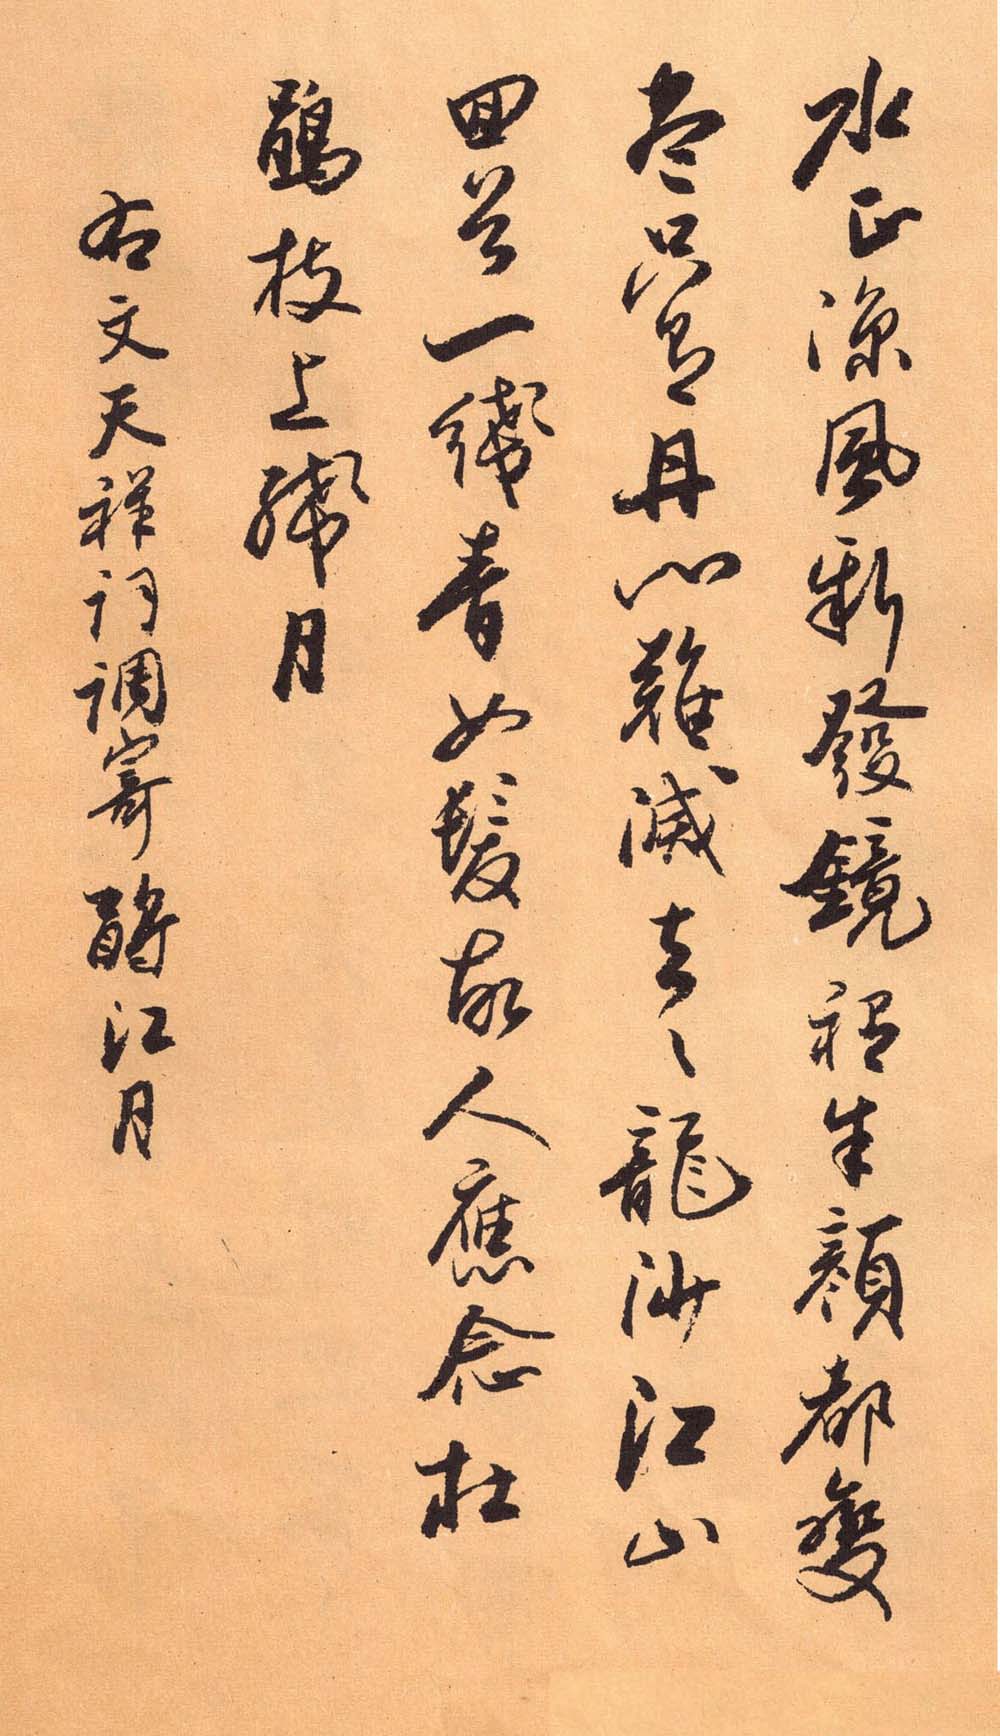 水正涼風新發鏡裡朱顔都變
尽只有丹心難滅去〻龍沙江山
回首一綫青如髮故人應念杜
鵑枝上殘月
右文天祥词调寄酹江月